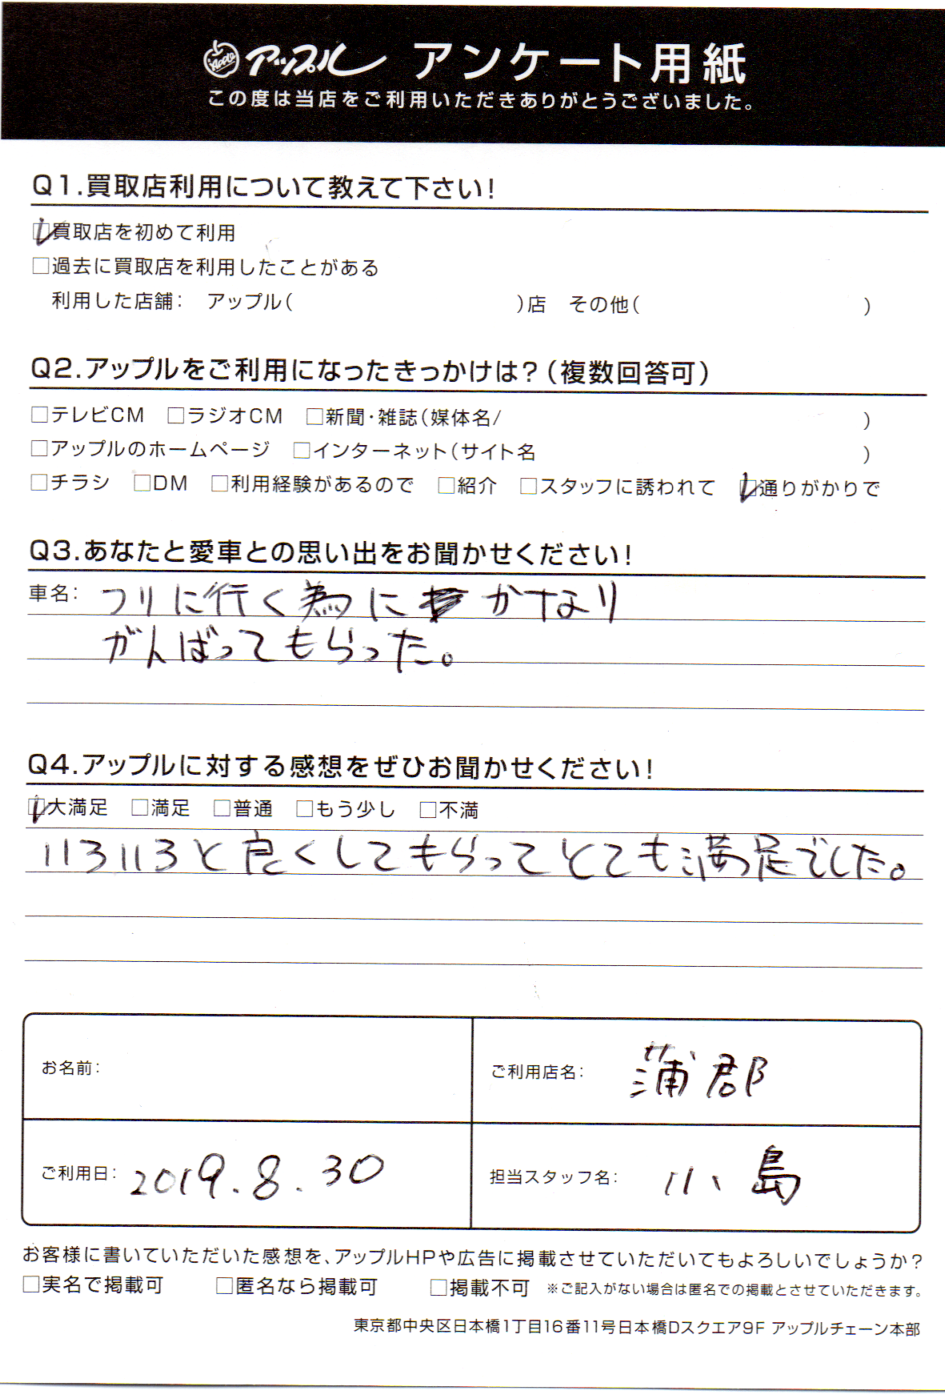 Apple アップル アンケート用紙
この度は当店をご利用いただきありがとうございました。
Q1.買取店利用について教えて下さい!
□買取店を初めて利用
□過去に買取店を利用したことがある
利用した店舗: アップル( )店 その他( )
Q2.アップルをご利用になったきっかけは?(複数回答可)
□テレビCM □ラジオCM □新聞・雑誌(媒体名/ )
□アップルのホームページ □インターネット(サイト名 )
□チラシ □DM □利用経験があるので □紹介 □スタッフに誘われて □通りがかりで
Q3.あなたと愛車との思い出をお聞かせください!
車名: つりに行く為に かなり
がんばってもらった。
Q4.アップルに対する感想をぜひお聞かせください!
□大満足 □満足 □普通 □もう少し □不満
いろいろと良くしてもらってとても満足でした。
お名前:
ご利用店名: 蒲郡
ご利用日: 2019.8.30
担当スタッフ名: 小島
お客様に書いていただいた感想を、アップルHPや広告に掲載させていただいてもよろしいでしょうか?
□実名で掲載可 □匿名なら掲載可 □掲載不可 ※ご記入がない場合は匿名での掲載とさせていただきます。
東京都中央区日本橋1丁目16番11号日本橋Dスクエア9F アップルチェーン本部